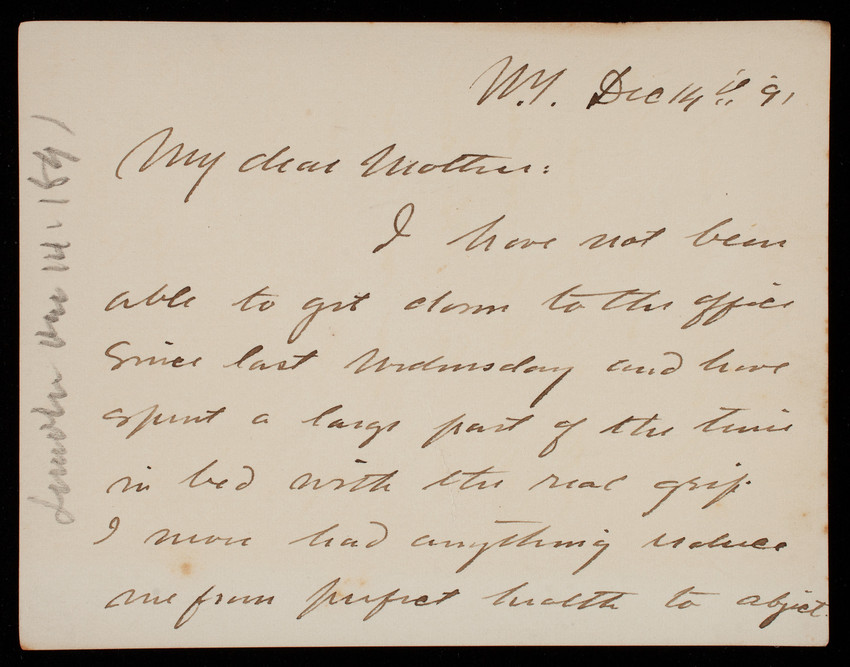 N.Y. Dec 14th '91
My dear Mother:
I have not been
able to get down to the office
since last Wednesday and have
spent a large part of the time
in bed with the real grip.
I never had anything reduce
me from perfect health to abject
Dec 14. 1891